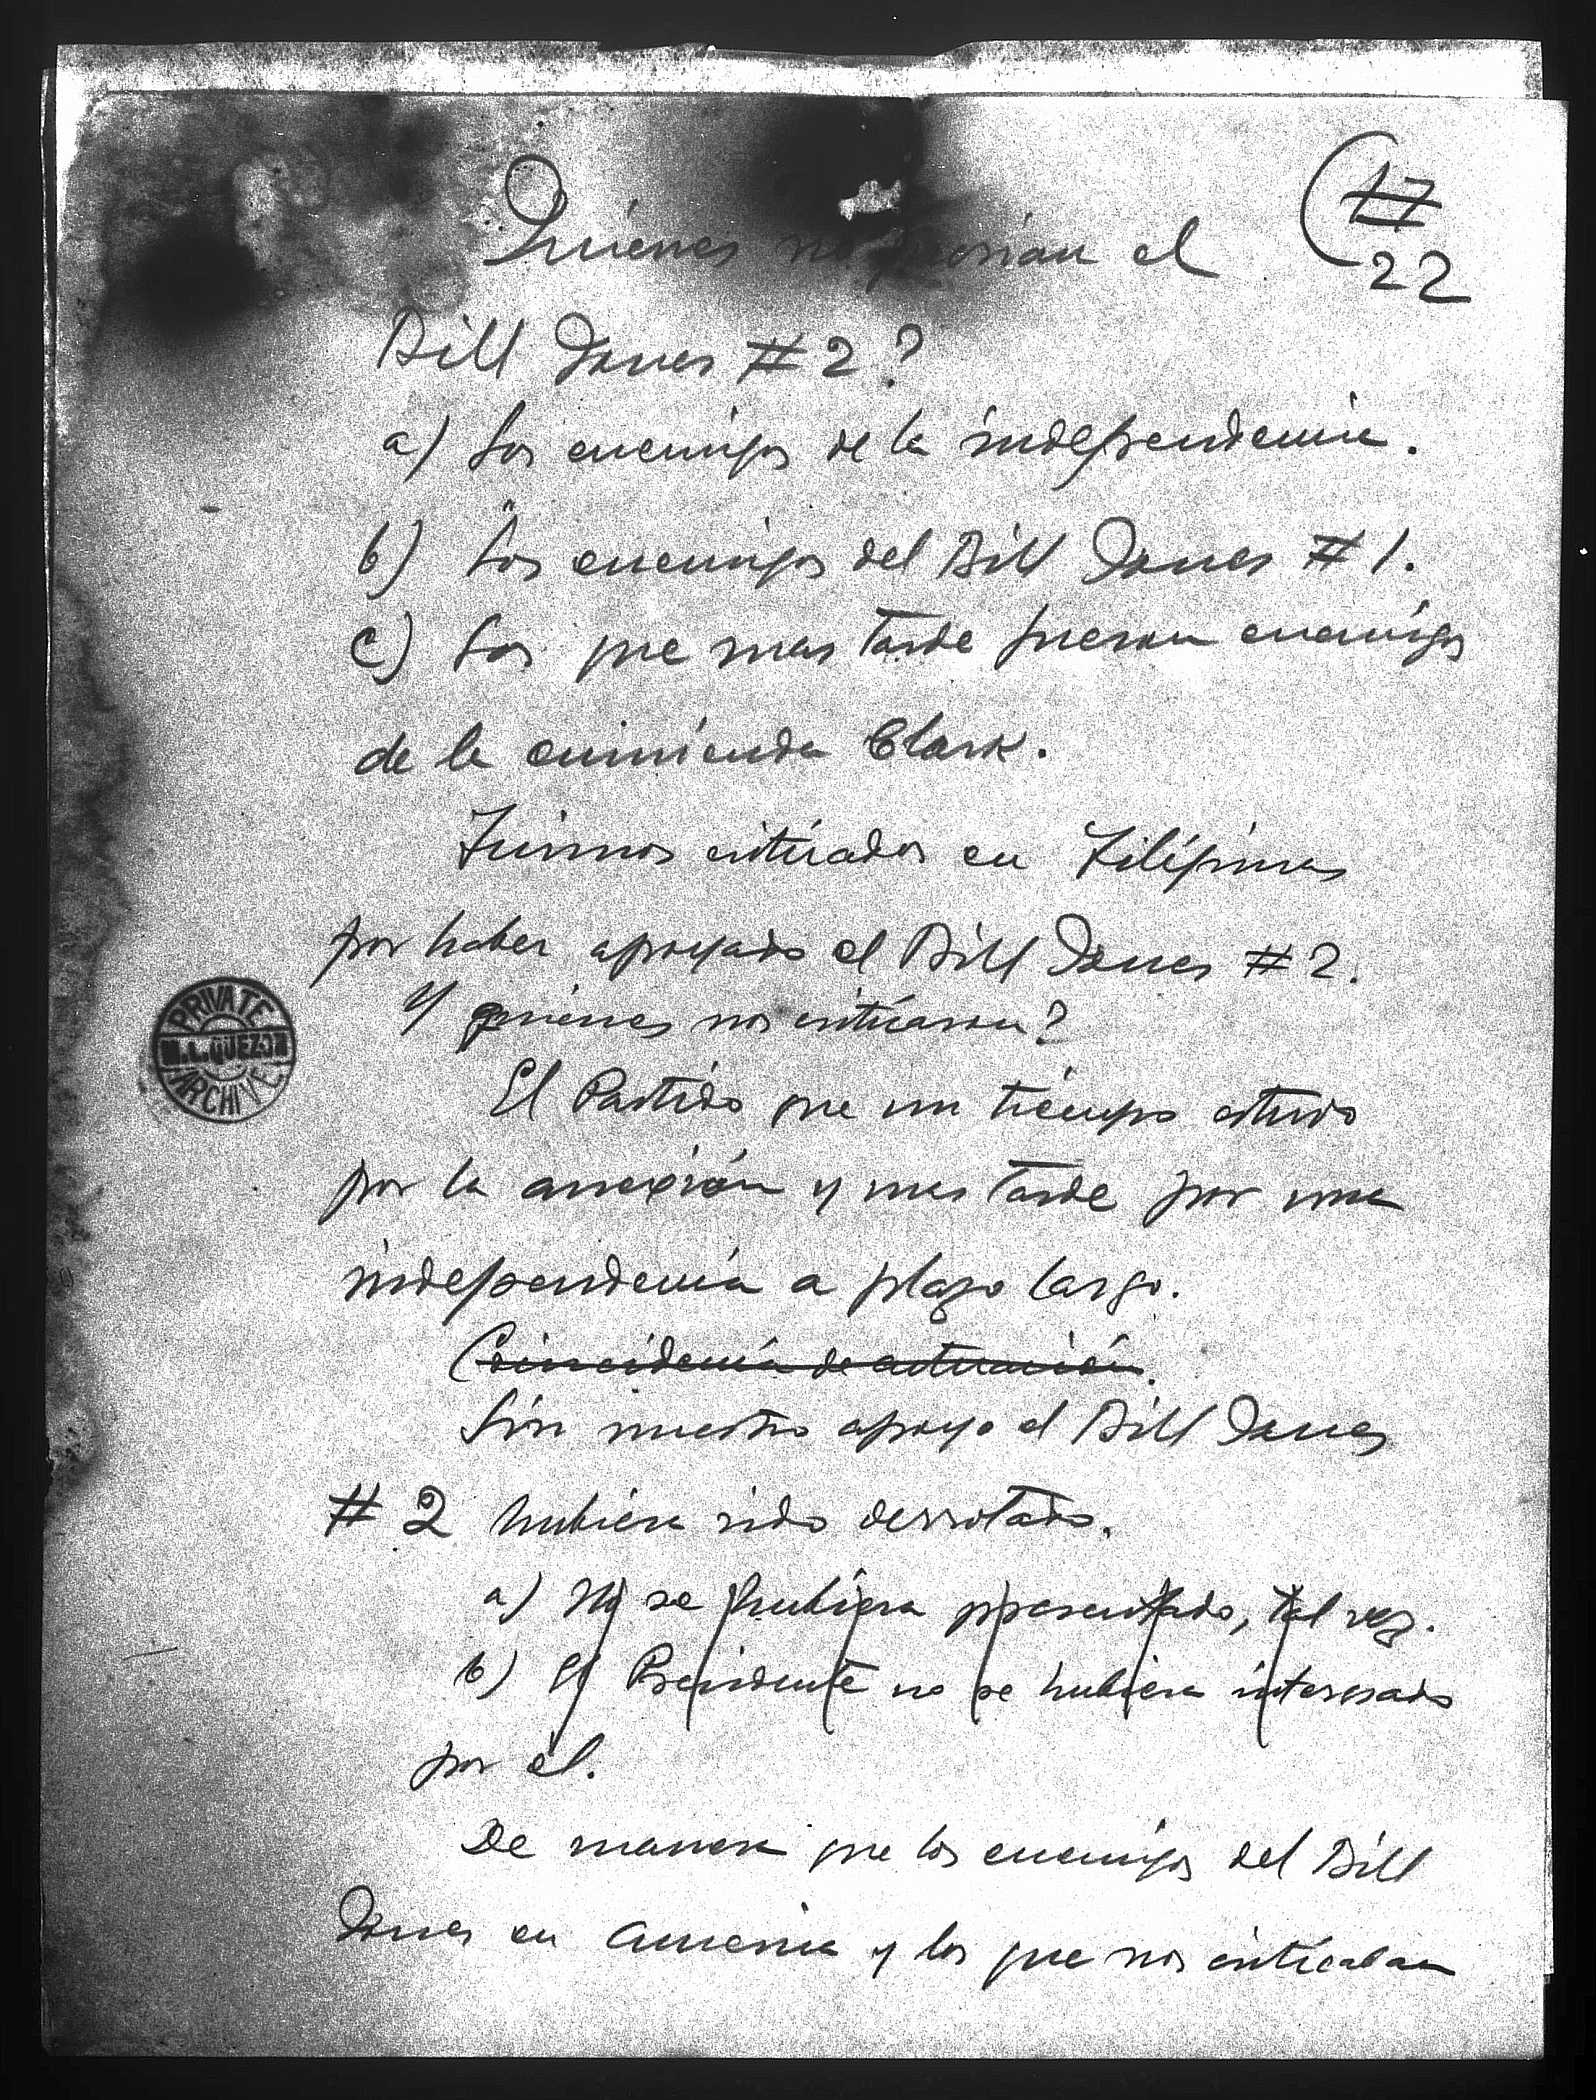 17
22
Quiénes no querían el
Bill Jones #2?
a) Los enemigos de la independencia.
b) Los enemigos del Bill Jones #1.
c) Los que mas tarde fueron enemigos
de la enmienda Clark.
Fuimos criticados en Filipinas
por haber apoyado el Bill Jones #2.
Y quiénes nos criticaron?
El Partido que un tiempo estuvo
por la anexión y mas tarde por una
independencia a plazo largo.
Coincidencia de actuación.
Sin nuestro apoyo el Bill Jones
#2 hubiera sido derrotado.
a) No se hubiera presentado, tal vez.
b) El Presidente no se hubiera interesado
por él.
De manera que los enemigos del Bill
Jones en America y los que nos criticaban
PRIVATE
M.L.QUEZON
ARCHIVE